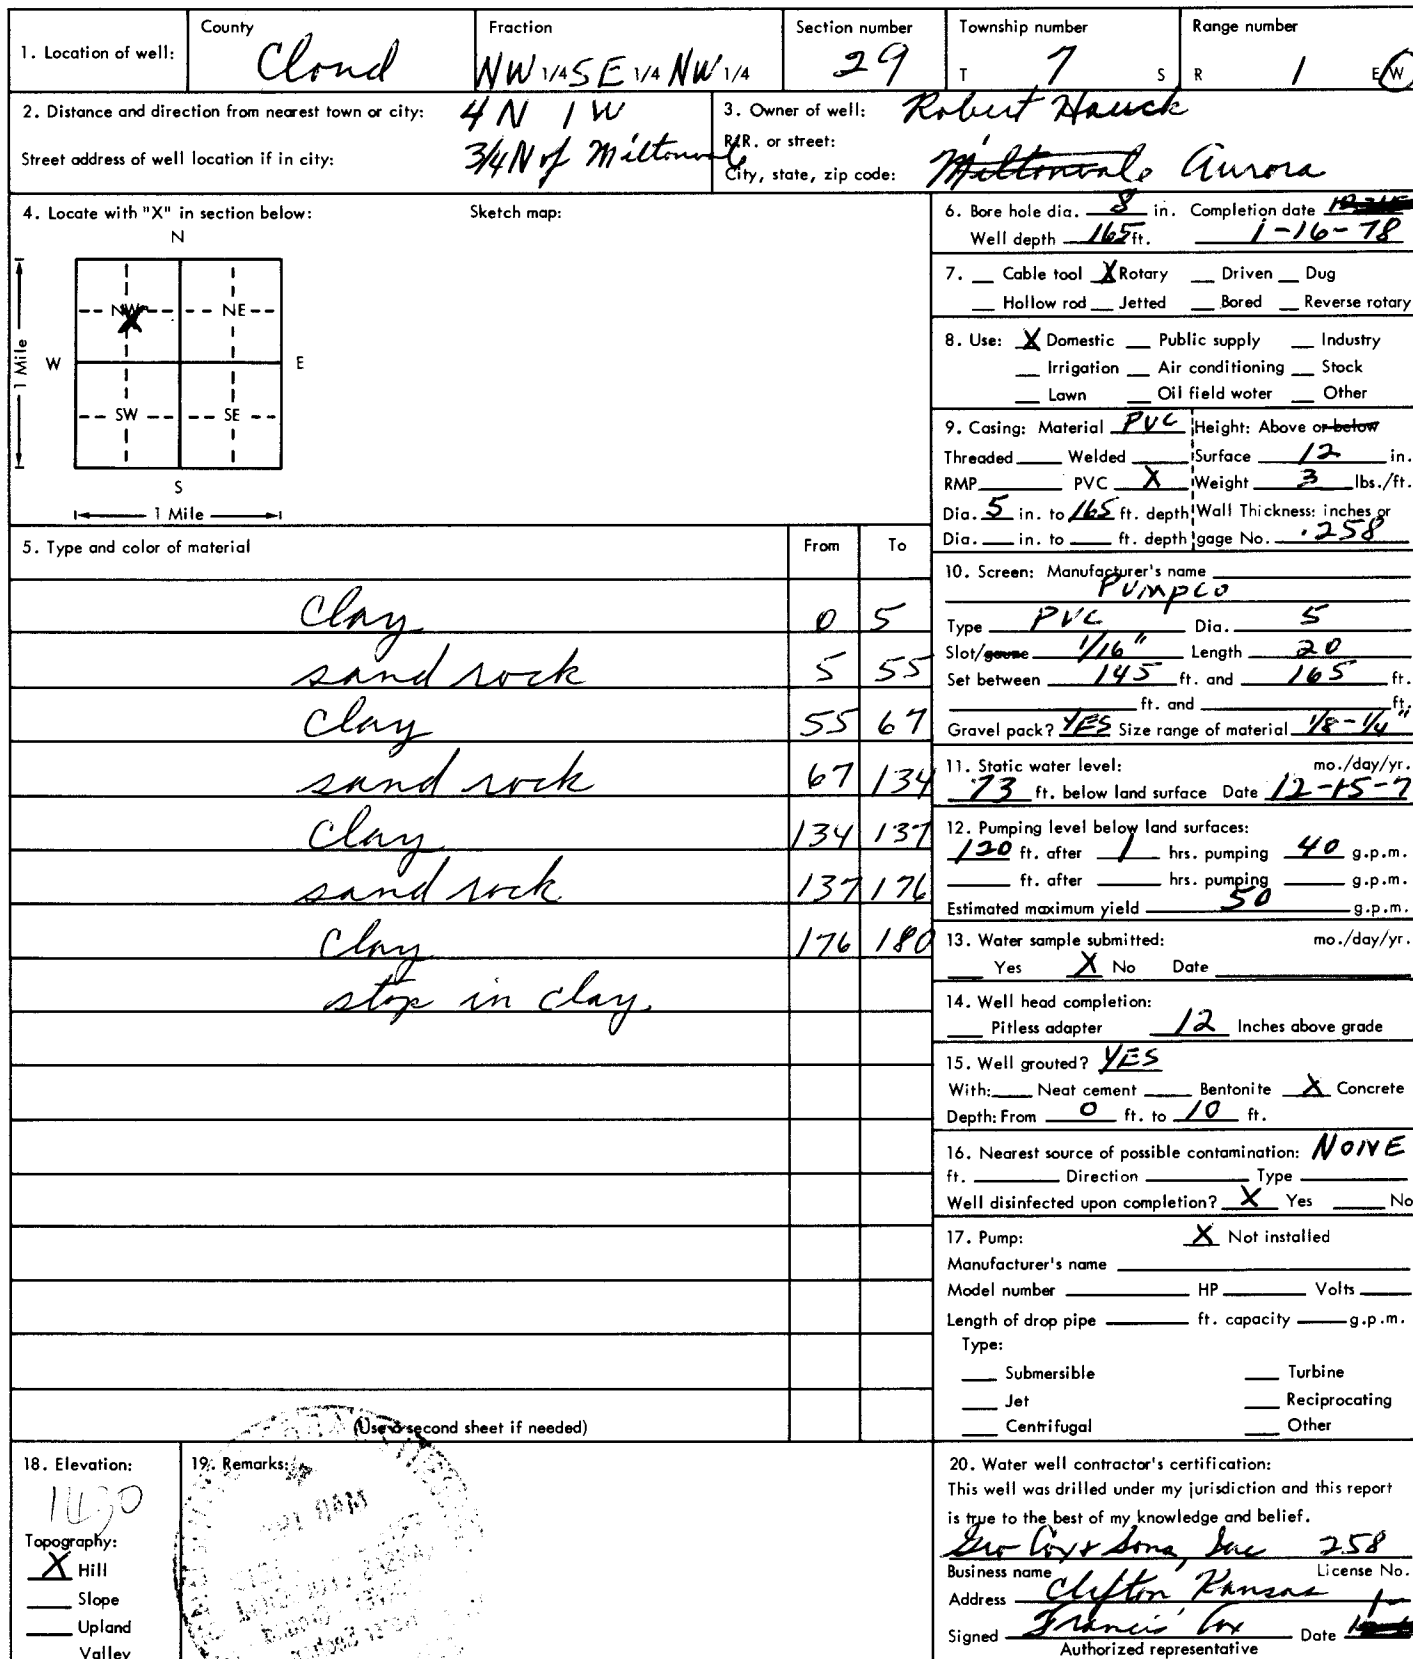 1. Location of well:
County
Cloud
Fraction
NW 1/4 SE 1/4 NW 1/4
Section number
29
Township number
T 7 S
Range number
R 1 E W
2. Distance and direction from nearest town or city: 4 N 1 W
Street address of well location if in city: 3/4 N of Miltonvale
3. Owner of well: Robert Hauck
R.R. or street:
City, state, zip code: Miltonvale Aurora
4. Locate with "X" in section below:
Sketch map:
N
NW X NE
W E
SW SE
S
1 Mile
1 Mile
5. Type and color of material From To
clay 0 5
sand rock 5 55
clay 55 67
sand rock 67 134
clay 134 137
sand rock 137 176
clay 176 180
stop in clay
(Use a second sheet if needed)
6. Bore hole dia. 8 in. Completion date
Well depth 165 ft. 1-16-78
7. __ Cable tool X Rotary __ Driven __ Dug
__ Hollow rod __ Jetted __ Bored __ Reverse rotary
8. Use: X Domestic __ Public supply __ Industry
__ Irrigation __ Air conditioning __ Stock
__ Lawn __ Oil field water __ Other
9. Casing: Material PVC Height: Above or below
Threaded ___ Welded ___ Surface 12 in.
RMP ___ PVC X Weight 3 lbs./ft.
Dia. 5 in. to 165 ft. depth Wall Thickness: inches or
Dia. __ in. to __ ft. depth gage No. .258
10. Screen: Manufacturer's name
PUMPCO
Type PVC Dia. 5
Slot/gauze 1/16" Length 20
Set between 145 ft. and 165 ft.
___ ft. and ___ ft.
Gravel pack? YES Size range of material 1/8-1/4"
11. Static water level: mo./day/yr.
73 ft. below land surface Date 12-15-7
12. Pumping level below land surfaces:
120 ft. after 1 hrs. pumping 40 g.p.m.
___ ft. after ___ hrs. pumping ___ g.p.m.
Estimated maximum yield 50 g.p.m.
13. Water sample submitted: mo./day/yr.
__ Yes X No Date
14. Well head completion:
__ Pitless adapter 12 Inches above grade
15. Well grouted? YES
With: __ Neat cement __ Bentonite X Concrete
Depth: From 0 ft. to 10 ft.
16. Nearest source of possible contamination: NONE
ft. ___ Direction ___ Type ___
Well disinfected upon completion? X Yes __ No
17. Pump: X Not installed
Manufacturer's name
Model number ___ HP ___ Volts ___
Length of drop pipe ___ ft. capacity ___ g.p.m.
Type:
__ Submersible __ Turbine
__ Jet __ Reciprocating
__ Centrifugal __ Other
18. Elevation:
1430
Topography:
X Hill
__ Slope
__ Upland
Valley
19. Remarks:
20. Water well contractor's certification:
This well was drilled under my jurisdiction and this report
is true to the best of my knowledge and belief.
Geo Cox & Sons, Inc 258
Business name License No.
Address Clifton Kansas
Signed Francis Cox Date
Authorized representative